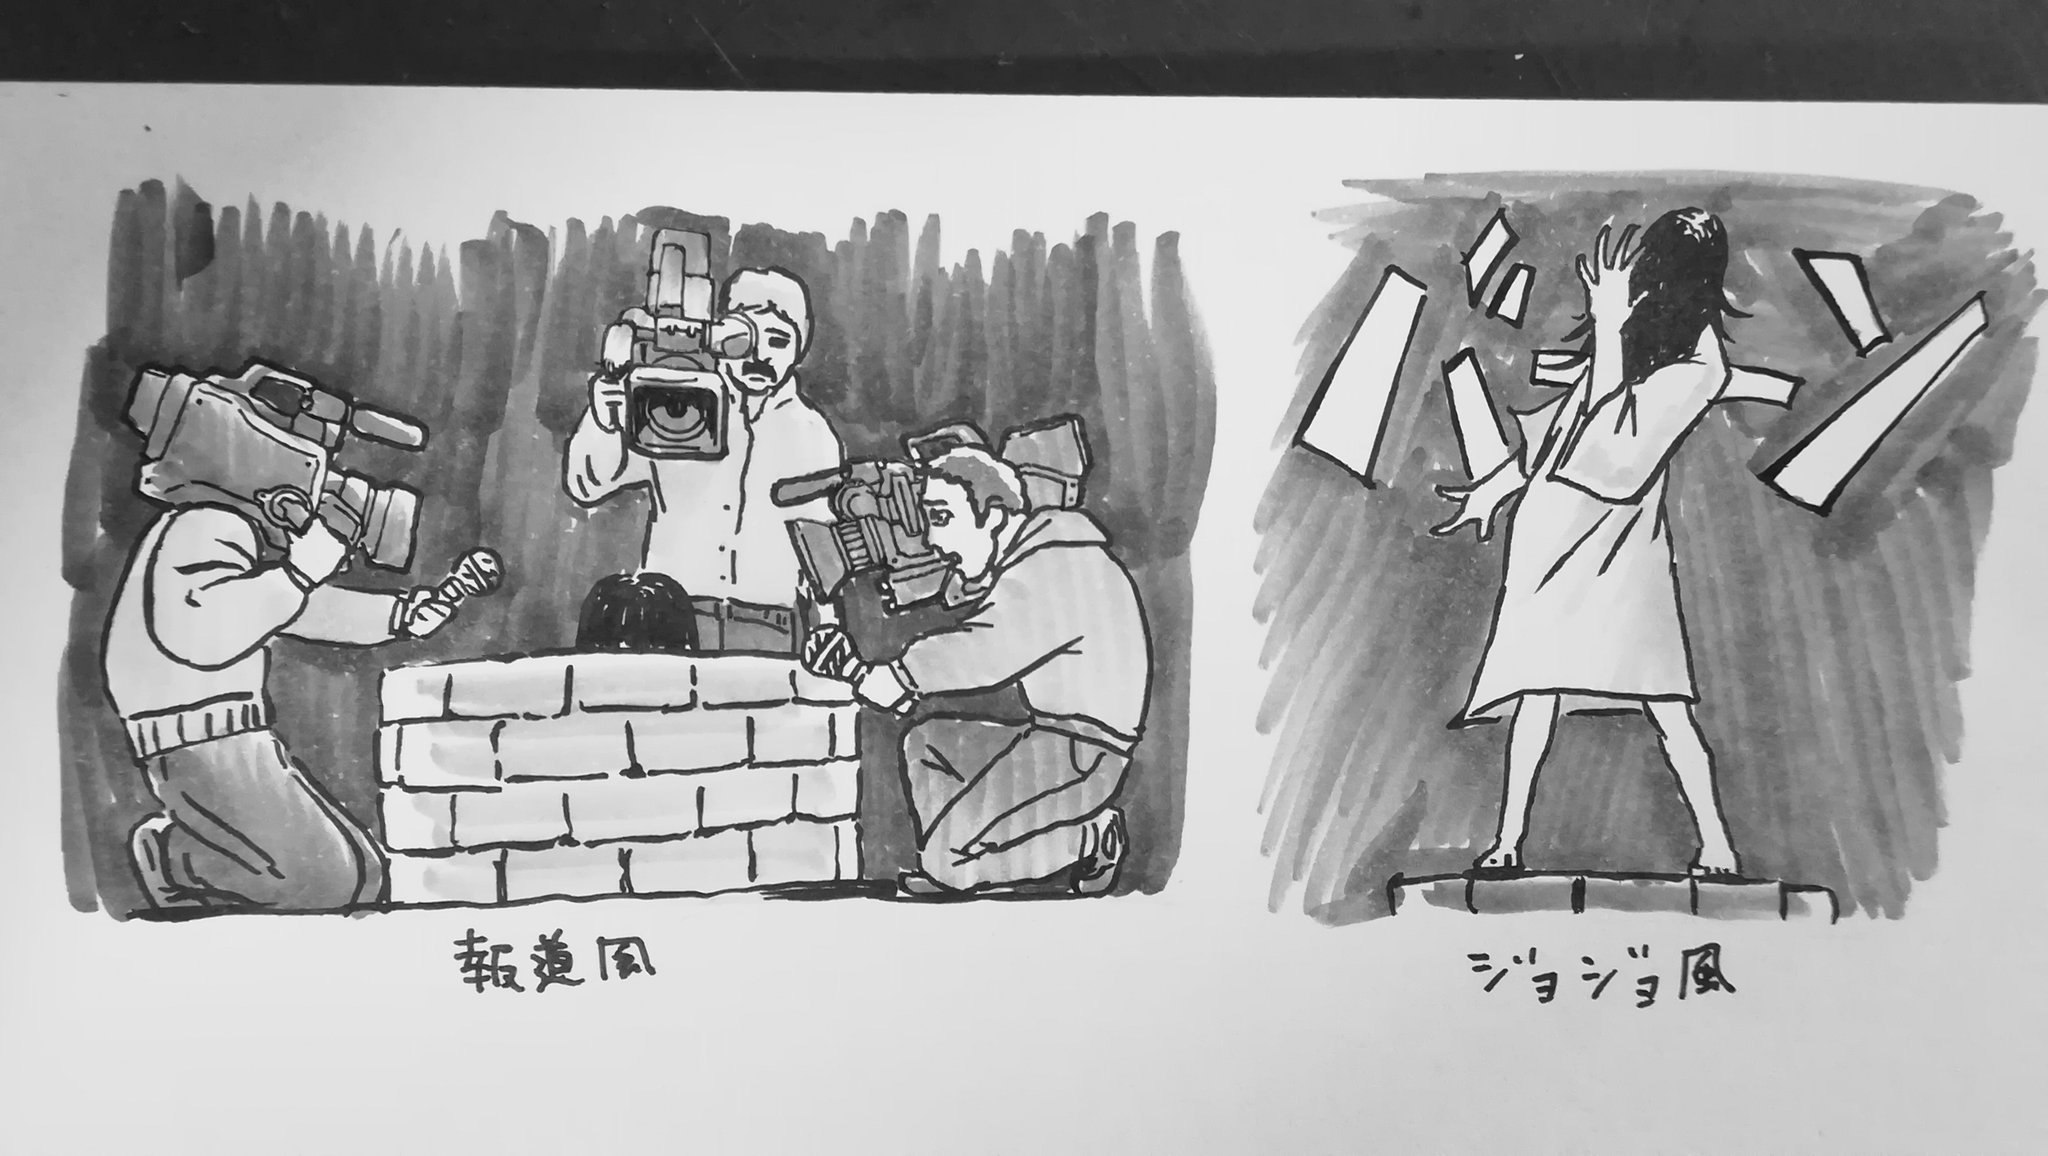 報道風
ジョジョ風